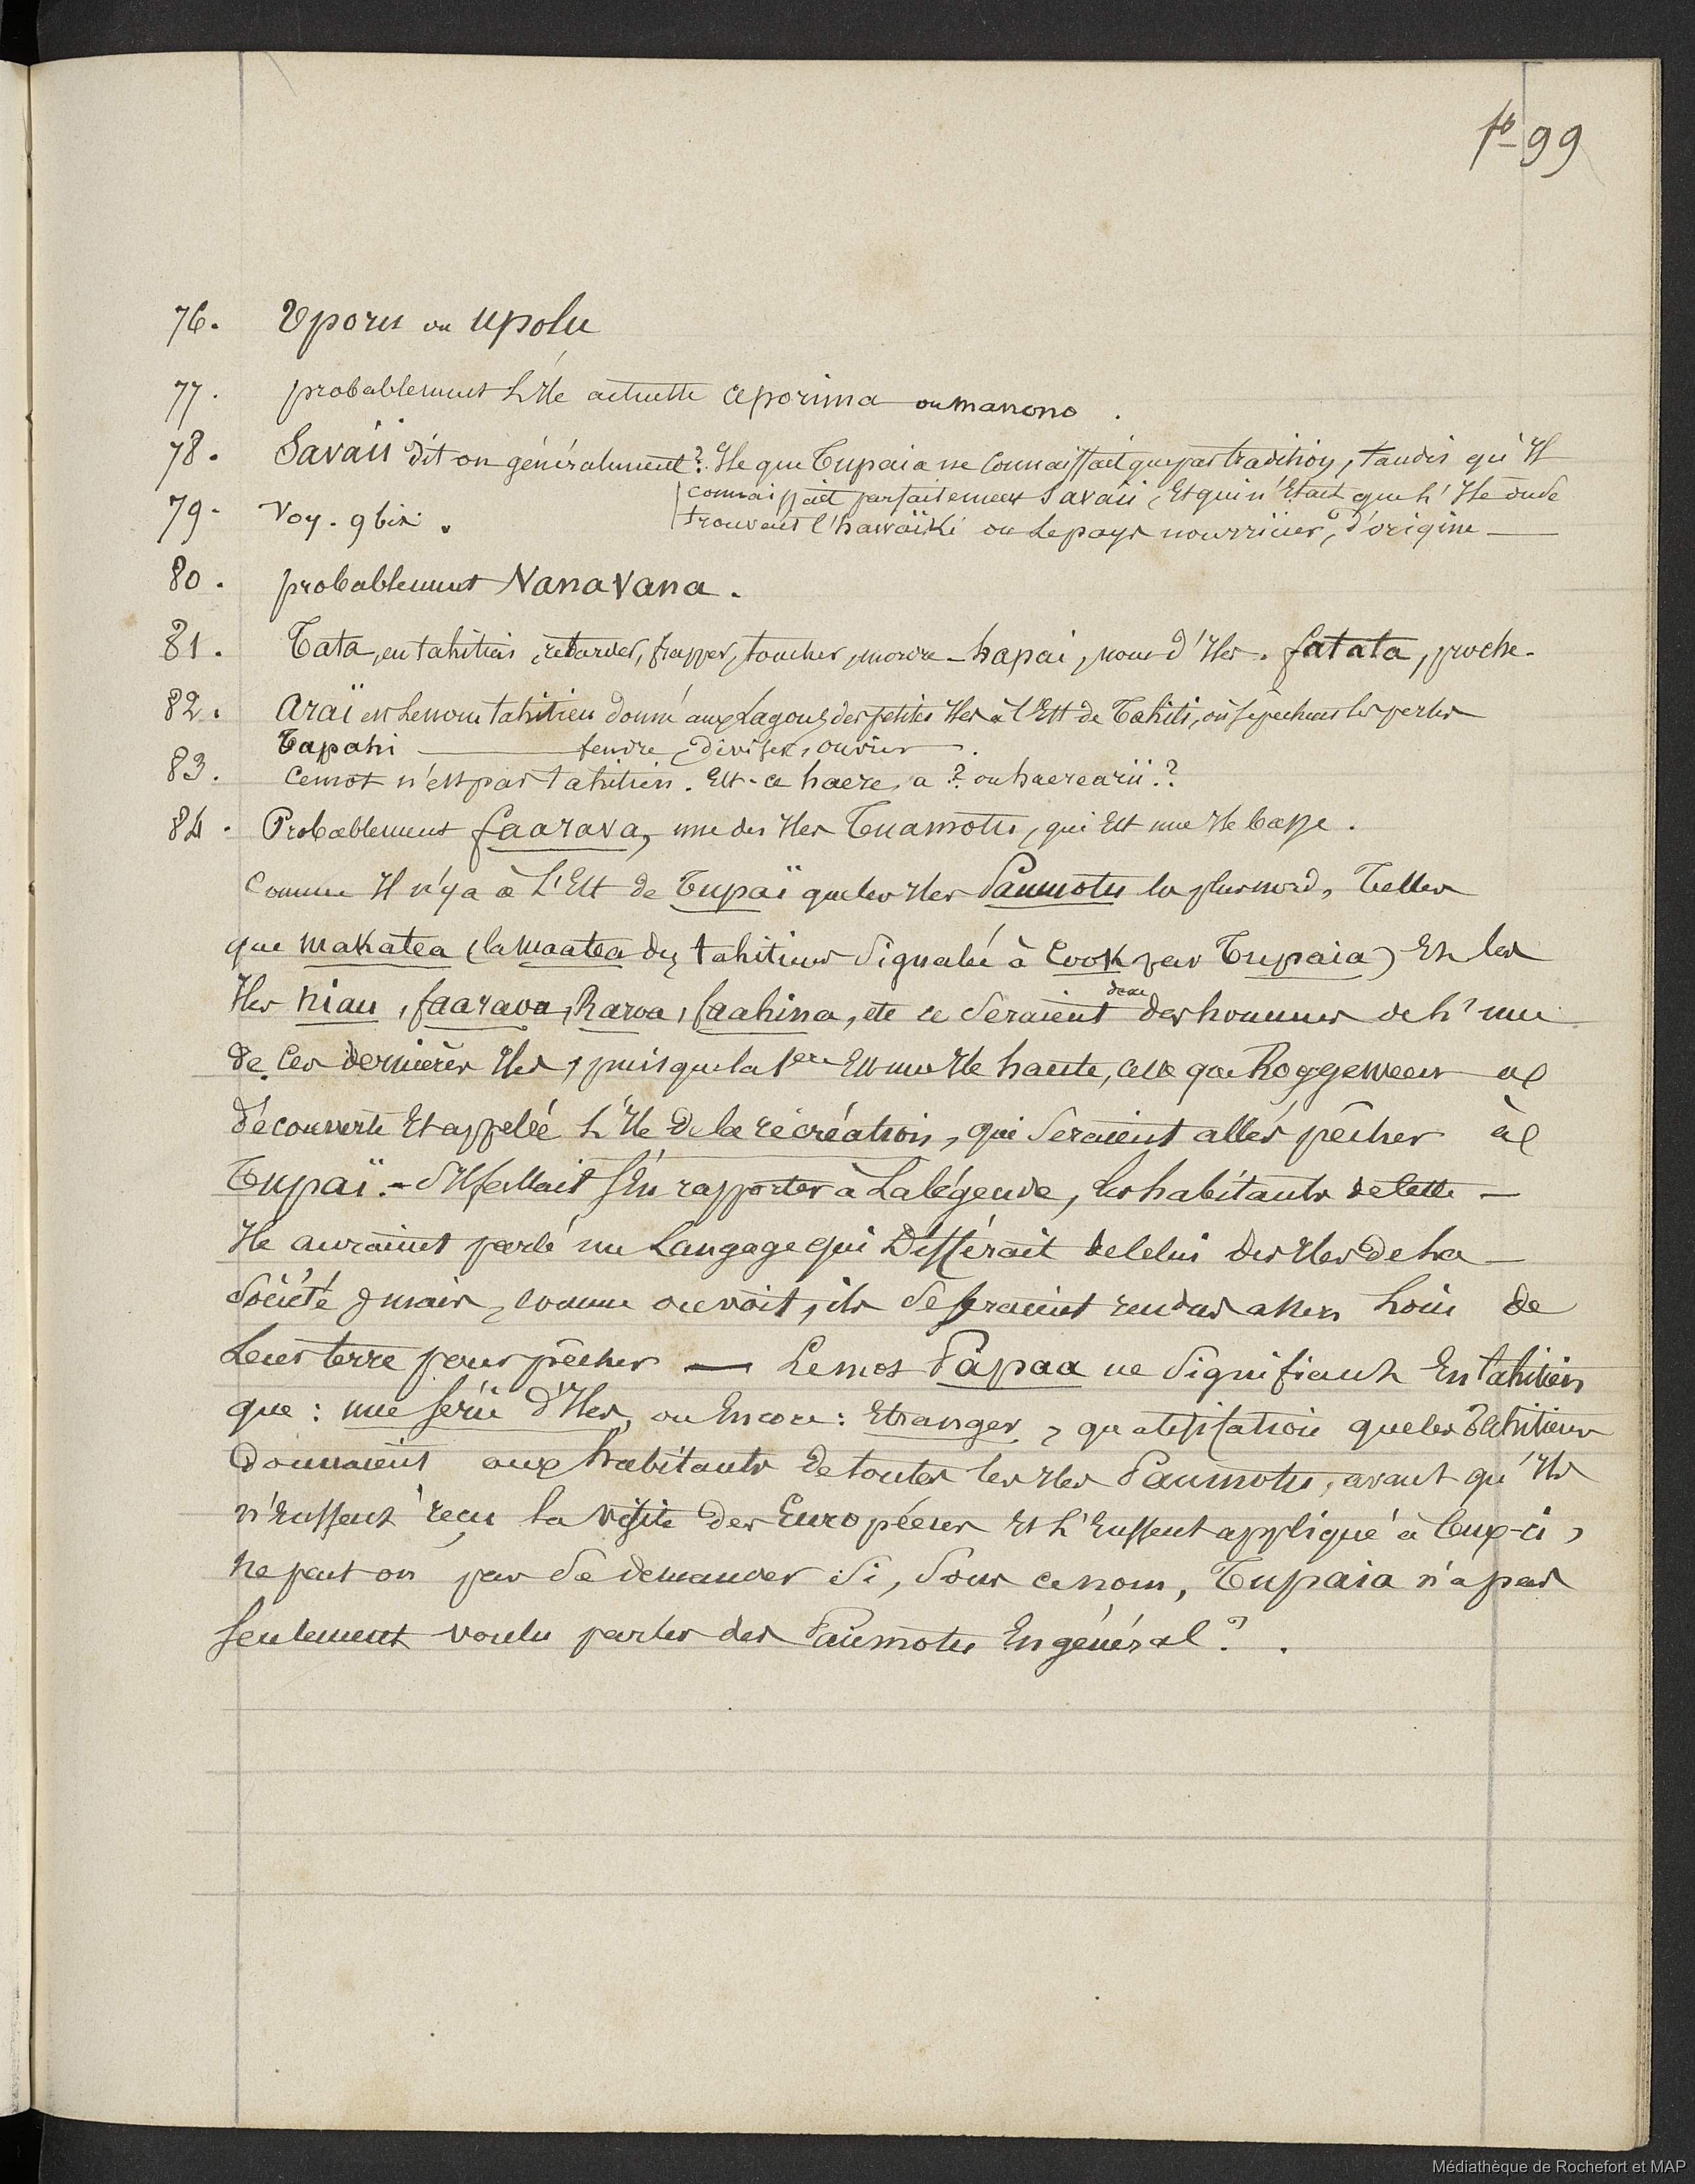 fo 99
76. Uporu ou Upolu
77. probablement L'Ile actuelle aporima ou manono.
78. Savaii dit on généralement? Ile que Tupaia ne connaissait que par tradition, tandis qu'Il
connaissait parfaitement Savaii, Et qui n'Etait que L'Ile où se
79. Voy. 9 bis. trouvait l'hawaïki ou Le pays nourricier, d'origine —
80. probablement Nanavana.
81. Tata, en tahitien, retarder, frapper, toucher, mordre - hapai, nom d'Iles. fatata, proche.
82. Araï est Le nom tahitien donné aux Lagons des petites Iles à l'Est de Tahiti, où se pêchent les perles
Tapahi — fendre, diviser, ouvrir.
83. Ce mot n'est pas tahitien. Est-ce haere, a? ou haerearii??
84. Probablement faarava, une des Iles Tuamotu, qui Est une Ile basse.
Comme Il n'y a à L'Est de Tupaï que les Iles Paumotu les plus nord, Telles
que makatea (la maatea des tahitiens Signalée à Cook par Tupaia) Et les
Iles niau, faarava, Raroa, faahina, etc ce Seraient donc des hommes de L'une
de Ces dernières Iles, puisque la 1ere Est une Ile haute, celle que Roggeween a
découverte Et appelée L'Ile De la récréation, qui Seraient allés pêcher à
Tupaï. - S'Il fallait s'En rapporter à La légende, Les habitants de Cette —
Ile auraient parlé un Langage qui Différait de Celui des Iles De La —
Société; mais, comme on voit, ils Se Seraient rendus assez Loin de
Leur terre pour pêcher — Le mot Papaa ne Signifiant En tahitien
que: une série d'Iles, ou Encore: Etranger, qualification que les Tahitiens
Donnaient aux habitants De toutes les Iles Paumotu, avant qu'Ils
n'Eussent reçu la visite Des Européens Et L'Eussent appliqué à Ceux-ci,
Ne peut on pas Se demander Si, Sous ce nom, Tupaia n'a pas
Seulement voulu parler des Paumotu En général?.
Médiathèque de Rochefort et MAP